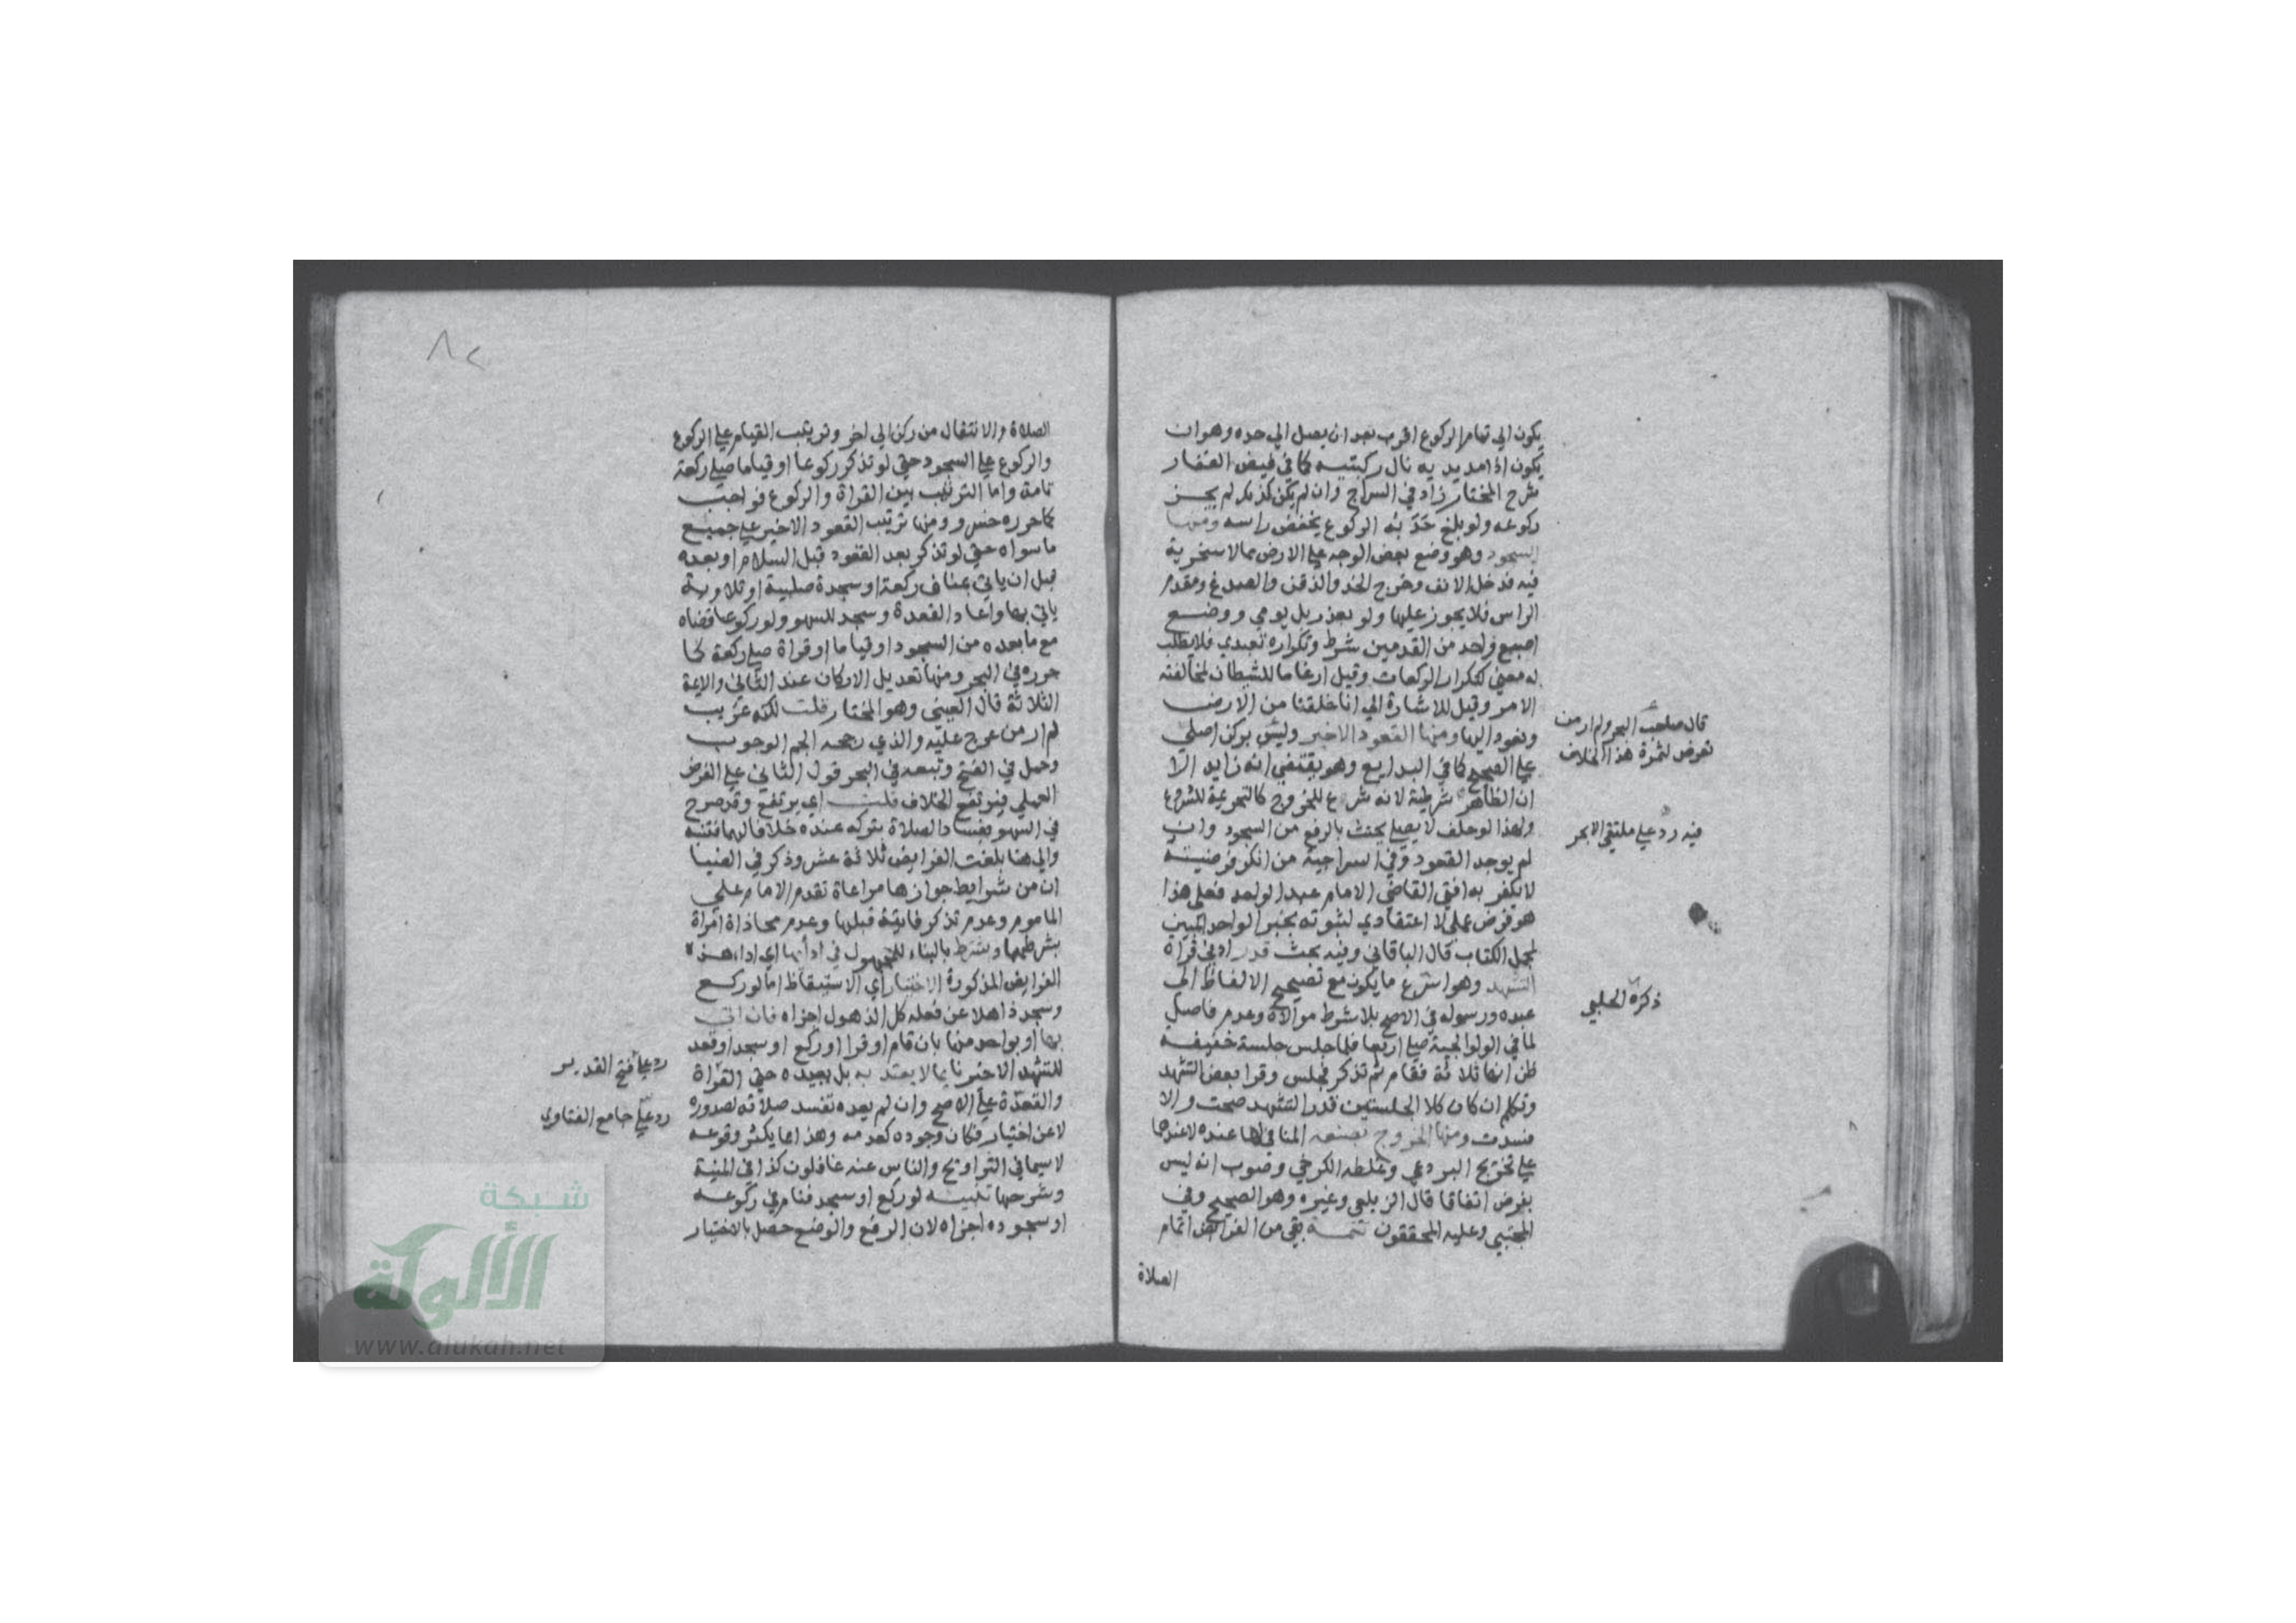 يكون الي تمام الركوع اقرب بعد ان يصل الي حده وهو ان
يكون اذا مد يديه نال ركبتيه كما في فيض الغفار
شرح المختار زاد في السراج وان لم يكن كذلك لم يجز
ركوعه ولو بلغ حدبته الركوع يخفض راسه ومنها
السجود وهو وضع بعض الوجه علي الارض مما لا سخرية
فيه فدخل الانف وخرج الخد والذقن والصدغ ومقدم
الراس فلا يجوز عليها ولو بعذر بل يومي ووضع
اصبع واحد من القدمين شرط وتكراره تعبدي فلا يطلب
له معني كتكرار الركعات وقيل ارغاما للشيطان لمخالفته
الامر وقيل للاشارة الي انا خلقنا من الارض
ونعود اليها ومنها القعود الاخير وليس بركن اصلي
علي الصحيح كما في البدايع وهو يقتضي انه زايد الا
ان الظاهر شرطيته لانه شرع للخروج كالتحريمة للشروع
ولهذا لو حلف لا يصلي يحنث بالرفع من السجود وان
لم يوجد القعود وفي السراجية من انكر فرضيته
لا يكفر به افتي القاضي الامام عبد الواحد فعلي هذا
هو فرض عملي لا اعتقادي لثبوته بخبر الواحد المبين
لمجمل الكتاب قال الباقاني وفيه بحث قدر ادني قراة
التشهد وهو اسرع ما يكون مع تصحيح الالفاظ الي
عبده ورسوله في الاصح بلا شرط موالاة وعدم فاصل
لما في الولوالجية صلي اربعا فلما جلس جلسة خفيفه
ظن انها ثلاثة فقام ثم تذكر فجلس وقرا بعض التشهد
وتكلم ان كان كلا الجلستين قدر التشهد صحت والا
فسدت ومنها الخروج بصنعه المنافي لها عنده لا عندهما
علي تخريج البردعي وغلطه الكرخي وصوب انه ليس
بفرض اتفاقا قال الزيلعي وغيره وهو الصحيح وفي
المجتبي وعليه المحققون تتمه بقي من الفرايض اتمام
الصلاة
قال صاحب البحر ولم ار من
تعرض لثمرة هذا الخلاف
فيه رد علي ملتقي الابحر
ذكره الحلبي
الصلاة والانتقال من ركن الي اخر وترتيب القيام علي الركوع
والركوع علي السجود حتي لو تذكر ركوعا او قياما صلي ركعة
تامة واما الترتيب بين القراة والركوع فواجب
كما حرره خسرو ومنها ترتيب القعود الاخير علي جميع
ما سواه حتي لو تذكر بعد القعود قبل السلام او بعده
قبل ان ياتي بمناف ركعة او سجدة صلبية او تلاوية
ياتي بها واعاد القعدة وسجد للسهو ولو ركوعا قضاه
مع ما بعده من السجود او قياما او قراة صلي ركعة كما
حرره في البحر ومنها تعديل الاركان عند الثاني والايمة
الثلاثة قال العيني وهو المختار قلت لكنه غريب
لم ار من عرج عليه والذي رجحه الجم الوجوب
وحمل في الفتح وتبعه في البحر قول الثاني علي الفرض
العملي فيرتفع الخلاف قلت اي يرتفع وقد صرح
في السهو بفساد الصلاة بتركه عنده خلافا لهما فتنبه
والي هنا بلغت الفرايض ثلاثة عشر وذكر في المنيا
ان من شرايط جوازها مراعاة تقدم الامام علي
الماموم وعدم تذكر فايتة قبلها وعدم محاذاة امراة
بشرطها وشرط بالبناء للمجهول في ادائها اي اداء هذه
الفرايض المذكورة الاختيار اي الاستيقاظ اما لو ركع
وسجد ذاهلا عن فعله كل الذهول اجزاه فان اتي
بها او بواحد منها بان قام او قرا او ركع او سجد او قعد
للتشهد الاخير نايما لا يعتد به بل يعيده حتي القراة
والقعدة علي الاصح وان لم يعده تفسد صلاته لصدوره
لا عن اختيار فكان وجوده كعدمه وهذا مما يكثر وقوعه
لا سيما في التراويح والناس عنه غافلون كذا في المنية
وشرحها تنبيه لو ركع او سجد فنام في ركوعه
او سجوده اجزاه لان الرفع والوضع حصل بالاختيار
رد علي فتح القدير
رد علي جامع الفتاوي
شبكة
الألوكة
www.alukah.net